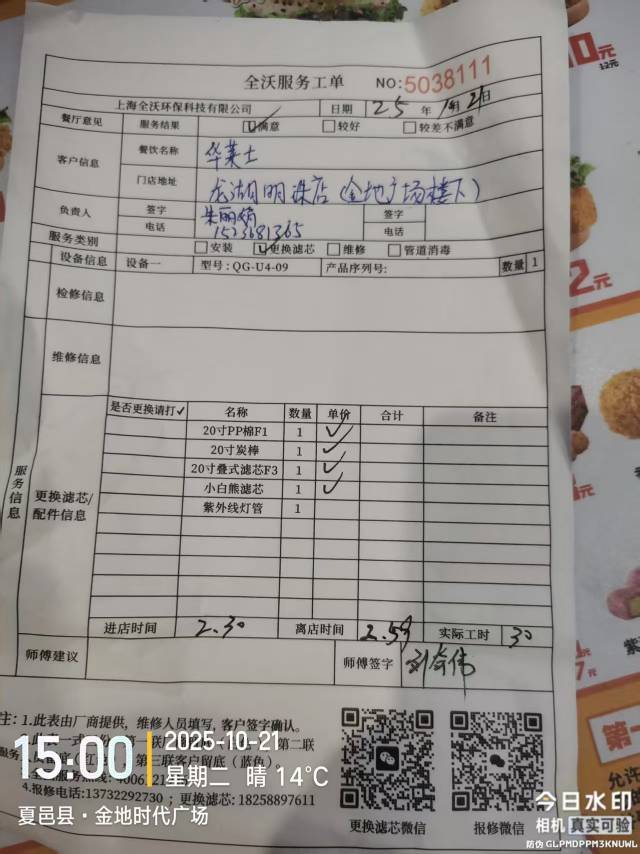 全沃服务工单 NO:5038111
上海全沃环保科技有限公司 日期 25 年 10月 21日
餐厅意见 服务结果 ☑满意 □较好 □较差不满意
客户信息 餐饮名称 华莱士
门店地址 龙湖明珠店(金地广场楼下)
负责人 签字 朱丽娟 签字
电话 电话
服务类别 □安装 ☑更换滤芯 □维修 □管道消毒
设备信息 设备一 型号:QG-U4-09 产品序列号: 数量 1
检修信息
维修信息
服务信息
更换滤芯/配件信息
是否更换请打✓ 名称 数量 单价 合计 备注
20寸PP棉F1 1 ✓
20寸炭棒 1 ✓
20寸叠式滤芯F3 1 ✓
小白熊滤芯 1 ✓
紫外线灯管 1
进店时间 2.30 离店时间 2.59 实际工时 30
师傅建议 师傅签字
注:1.此表由厂商提供,维修人员填写,客户签字确认。
第二联
第三联客户留底(蓝色)。
4.报修电话:13732292730;更换滤芯:18258897611
更换滤芯微信 报修微信
15:00 2025-10-21
星期二 晴 14℃
夏邑县·金地时代广场
今日水印
相机 真实可验
防伪 GLPMDPPM3KNUWL
10元
12元
2元
7元
第一
允许